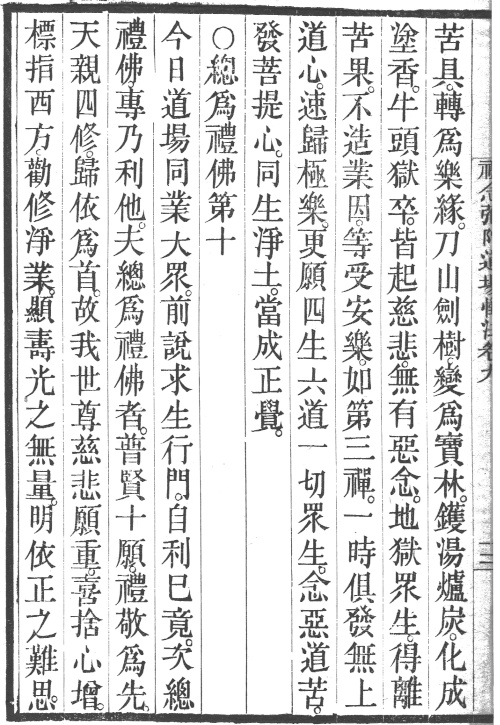 苦具。轉爲樂緣。刀山劍樹。變爲寶林。鑊湯爐炭。化成
塗香。牛頭獄卒。皆起慈悲。無有惡念。地獄眾生。得離
苦果。不造業因。等受安樂。如第三禪。一時俱發無上
道心。速歸極樂。更願四生六道一切眾生。念惡道苦。
發菩提心。同生淨土。當成正覺。
○總爲禮佛第十
今日道場同業大眾。前說求生行門。自利已竟。次總
禮佛。專乃利他。夫總爲禮佛者。普賢十願。禮敬爲先。
天親四修。歸依爲首。故我世尊慈悲願重。喜捨心增。
標指西方。勸修淨業。顯壽光之無量。明依正之難思。